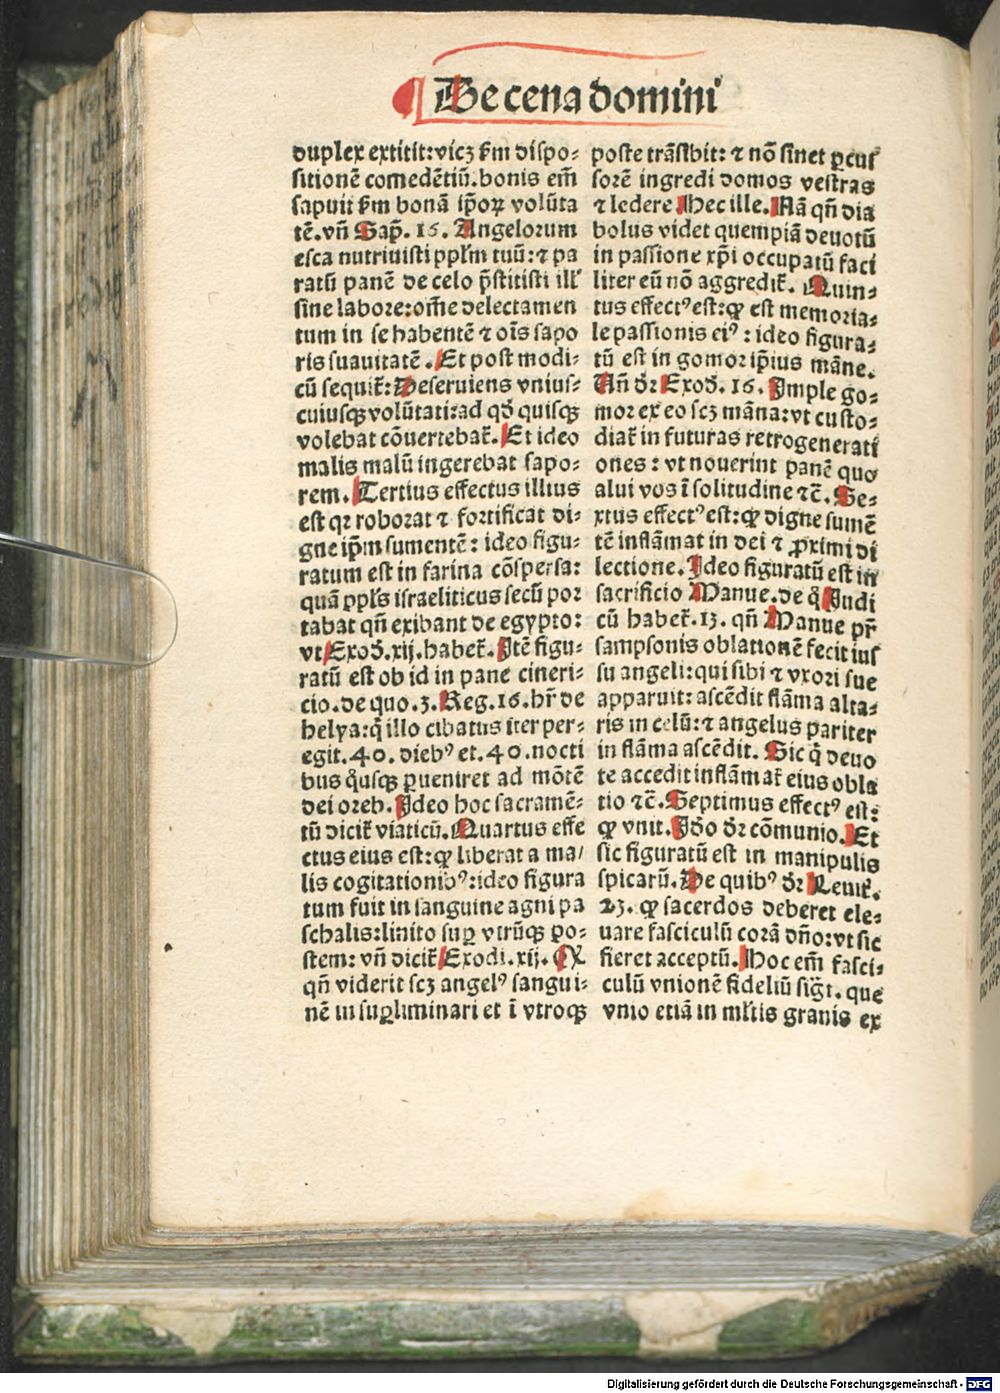 De cena domini
duplex extitit: vicꝫ ẜm dispo⸗
sitionē comedētiū. bonis em̄
sapuit ẜm bonā ip̄oꝝ volūta
tē. vn̄ Sap̄. 16. Angelorum
esca nutriuisti ppl̄m tuū: ⁊ pa
ratū panē de celo p̄stitisti ill'
sine labore: om̄e delectamen
tum in se habentē ⁊ oīs sapo
ris suauitatē. Et post modi⸗
cū sequit̄: Deseruiens vnius⸗
cuiusqꝫ volūtati: ad qd̄ quisqꝫ
volebat cōuertebat̄. Et ideo
malis malū ingerebat sapo⸗
rem. Tertius effectus illius
est qꝛ roborat ⁊ fortificat di⸗
gne ip̄m sumentē: ideo figu⸗
ratum est in farina cōspersa:
quā ppl̄s israeliticus secū por
tabat qn̄ exibant de egypto:
vt Exod̄. xij. habet̄. Itē figu⸗
ratū est ob id in pane cineri⸗
cio. de quo. 3. Reg. 16. hr̄ de
helya: q̄ illo cibatus iter per⸗
egit. 40. dieb⁹ et. 40. nocti
bus q̊usqꝫ ꝑueniret ad mōtē
dei oreb. Ideo hoc sacramē⸗
tū dicit̄ viaticū. Quartus effe
ctus eius est: ꝙ liberat a ma/
lis cogitationib⁹: ideo figura
tum fuit in sanguine agni pa
schalis: linito suꝑ vtrūqꝫ po⸗
stem: vn̄ dicit̄ Exodi. xij. Qꝫ
qn̄ viderit scꝫ angel⁹ sangui⸗
nē in suꝑliminari et ī vtroqꝫ
poste trāsibit: ⁊ nō sinet ꝑcus
sorē ingredi domos vestras
⁊ ledere Hec ille. Nā qn̄ dia
bolus videt quempiā deuotū
in passione xp̄i occupatū faci
liter eū nō aggredit̄. Quin⸗
tus effect⁹ est: ꝙ est memoria⸗
le passionis ei⁹: ideo figura⸗
tū est in gomor ip̄ius māne.
Vn̄ dr̄ Exod̄. 16. Imple go⸗
mor ex eo scꝫ māna: vt custo⸗
diat̄ in futuras retro generati
ones: vt nouerint panē quo
alui vos ī solitudine ⁊c̄. Se⸗
xtus effect⁹ est: ꝙ digne sumē
tē inflāmat in dei ⁊ ꝓximi di
lectione. Ideo figuratū est in
sacrificio Manue. de q̊ Iudi
cū habet̄. 13. qn̄ Manue pr̄
sampsonis oblationē fecit ius
su angeli: qui sibi ⁊ vxori sue
apparuit: ascēdit flāma alta⸗
ris in celū: ⁊ angelus pariter
in flāma ascēdit. Sic q̄ deuo
te accedit inflāmat̄ eius obla
tio ⁊c̄. Septimus effect⁹ est:
ꝙ vnit. Ido dr̄ cōmunio. Et
sic figuratū est in manipulis
spicarū. De quib⁹ dr̄ Leuit̄.
23. ꝙ sacerdos deberet ele⸗
uare fasciculū corā dn̄o: vt sic
fieret acceptū. Hoc em̄ fasci⸗
culū vnionē fideliū sigt̄. que
vnio etiā in ml̄tis granis ex
Digitalisierung gefördert durch die Deutsche Forschungsgemeinschaft - DFG